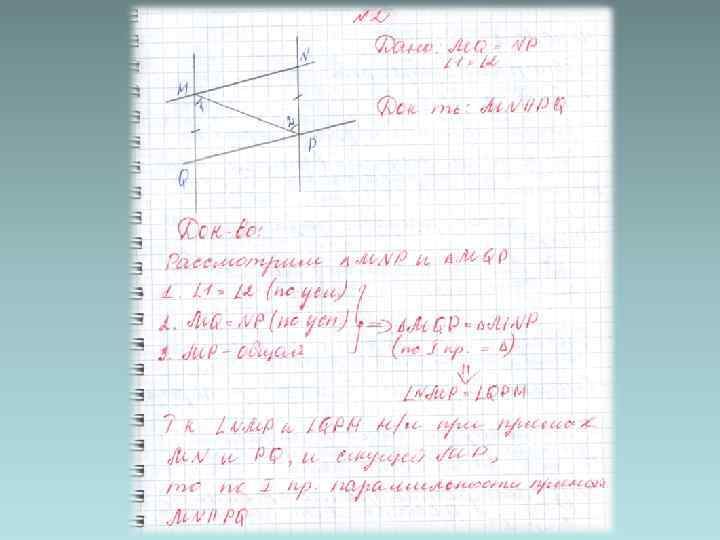 №2
Дано: MQ = NP
∠1 = ∠2
Док-ть: MN ∥ PQ
N
M
1
2
P
Q
Док-во:
Рассмотрим △MNP и △MQP
1. ∠1 = ∠2 (по усл)
2. MQ = NP (по усл) ⇒ △MQP = △MNP
3. MP - общая (по I пр. = △)
⇓
∠NMP = ∠QPM
Т к ∠NMP и ∠QPM н/л при прямых
MN и PQ, и секущей MP,
то по I пр. параллельности прямой
MN ∥ PQ